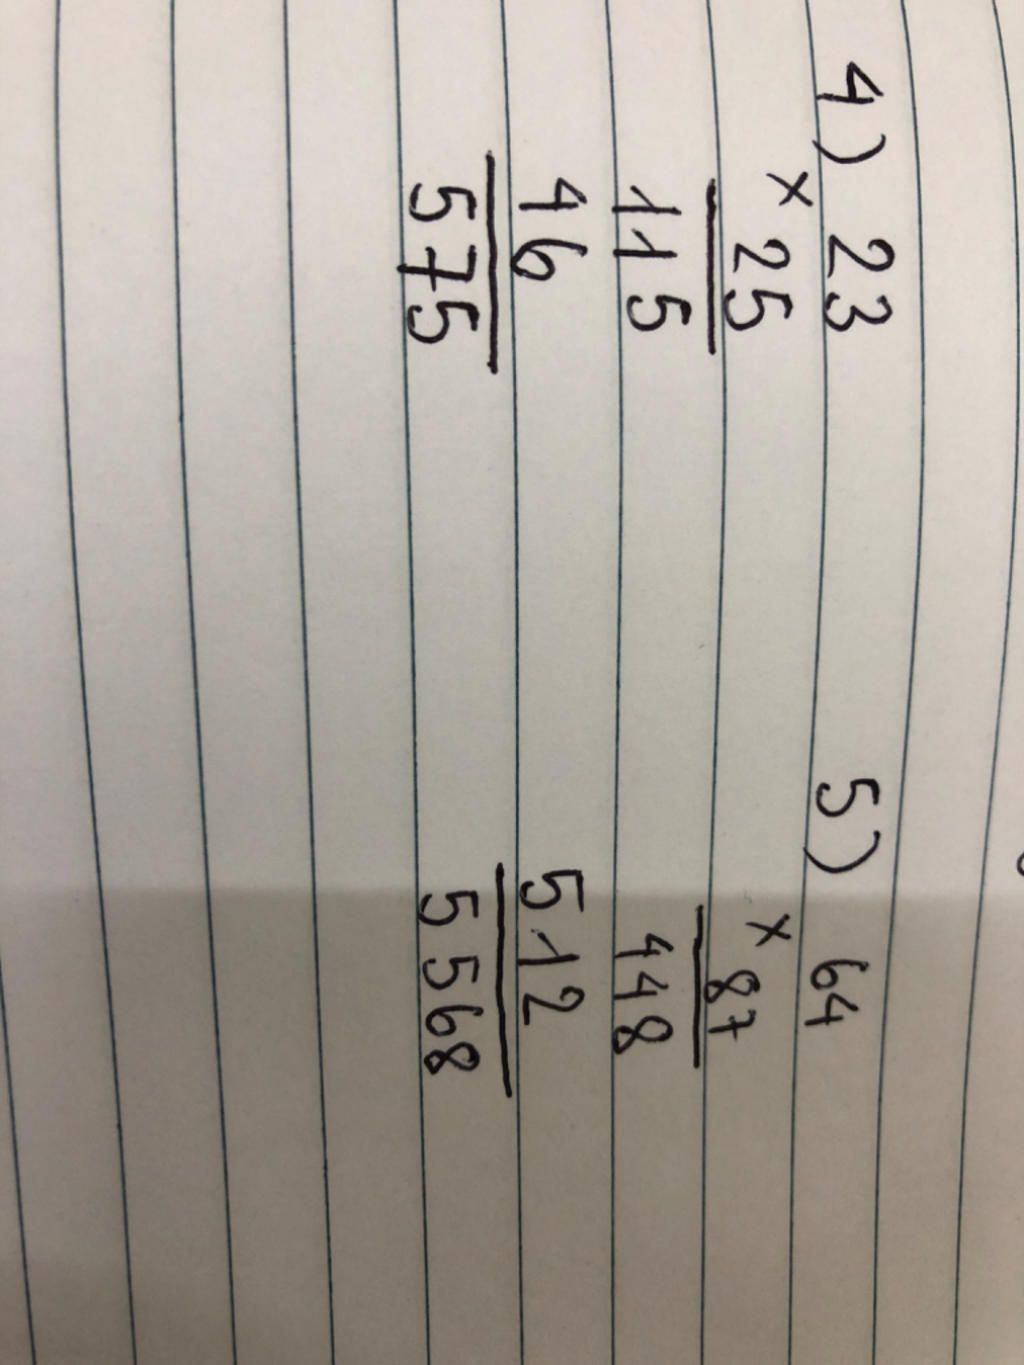 4) 23
× 25
115
46
575
5) 64
× 87
448
512
5568